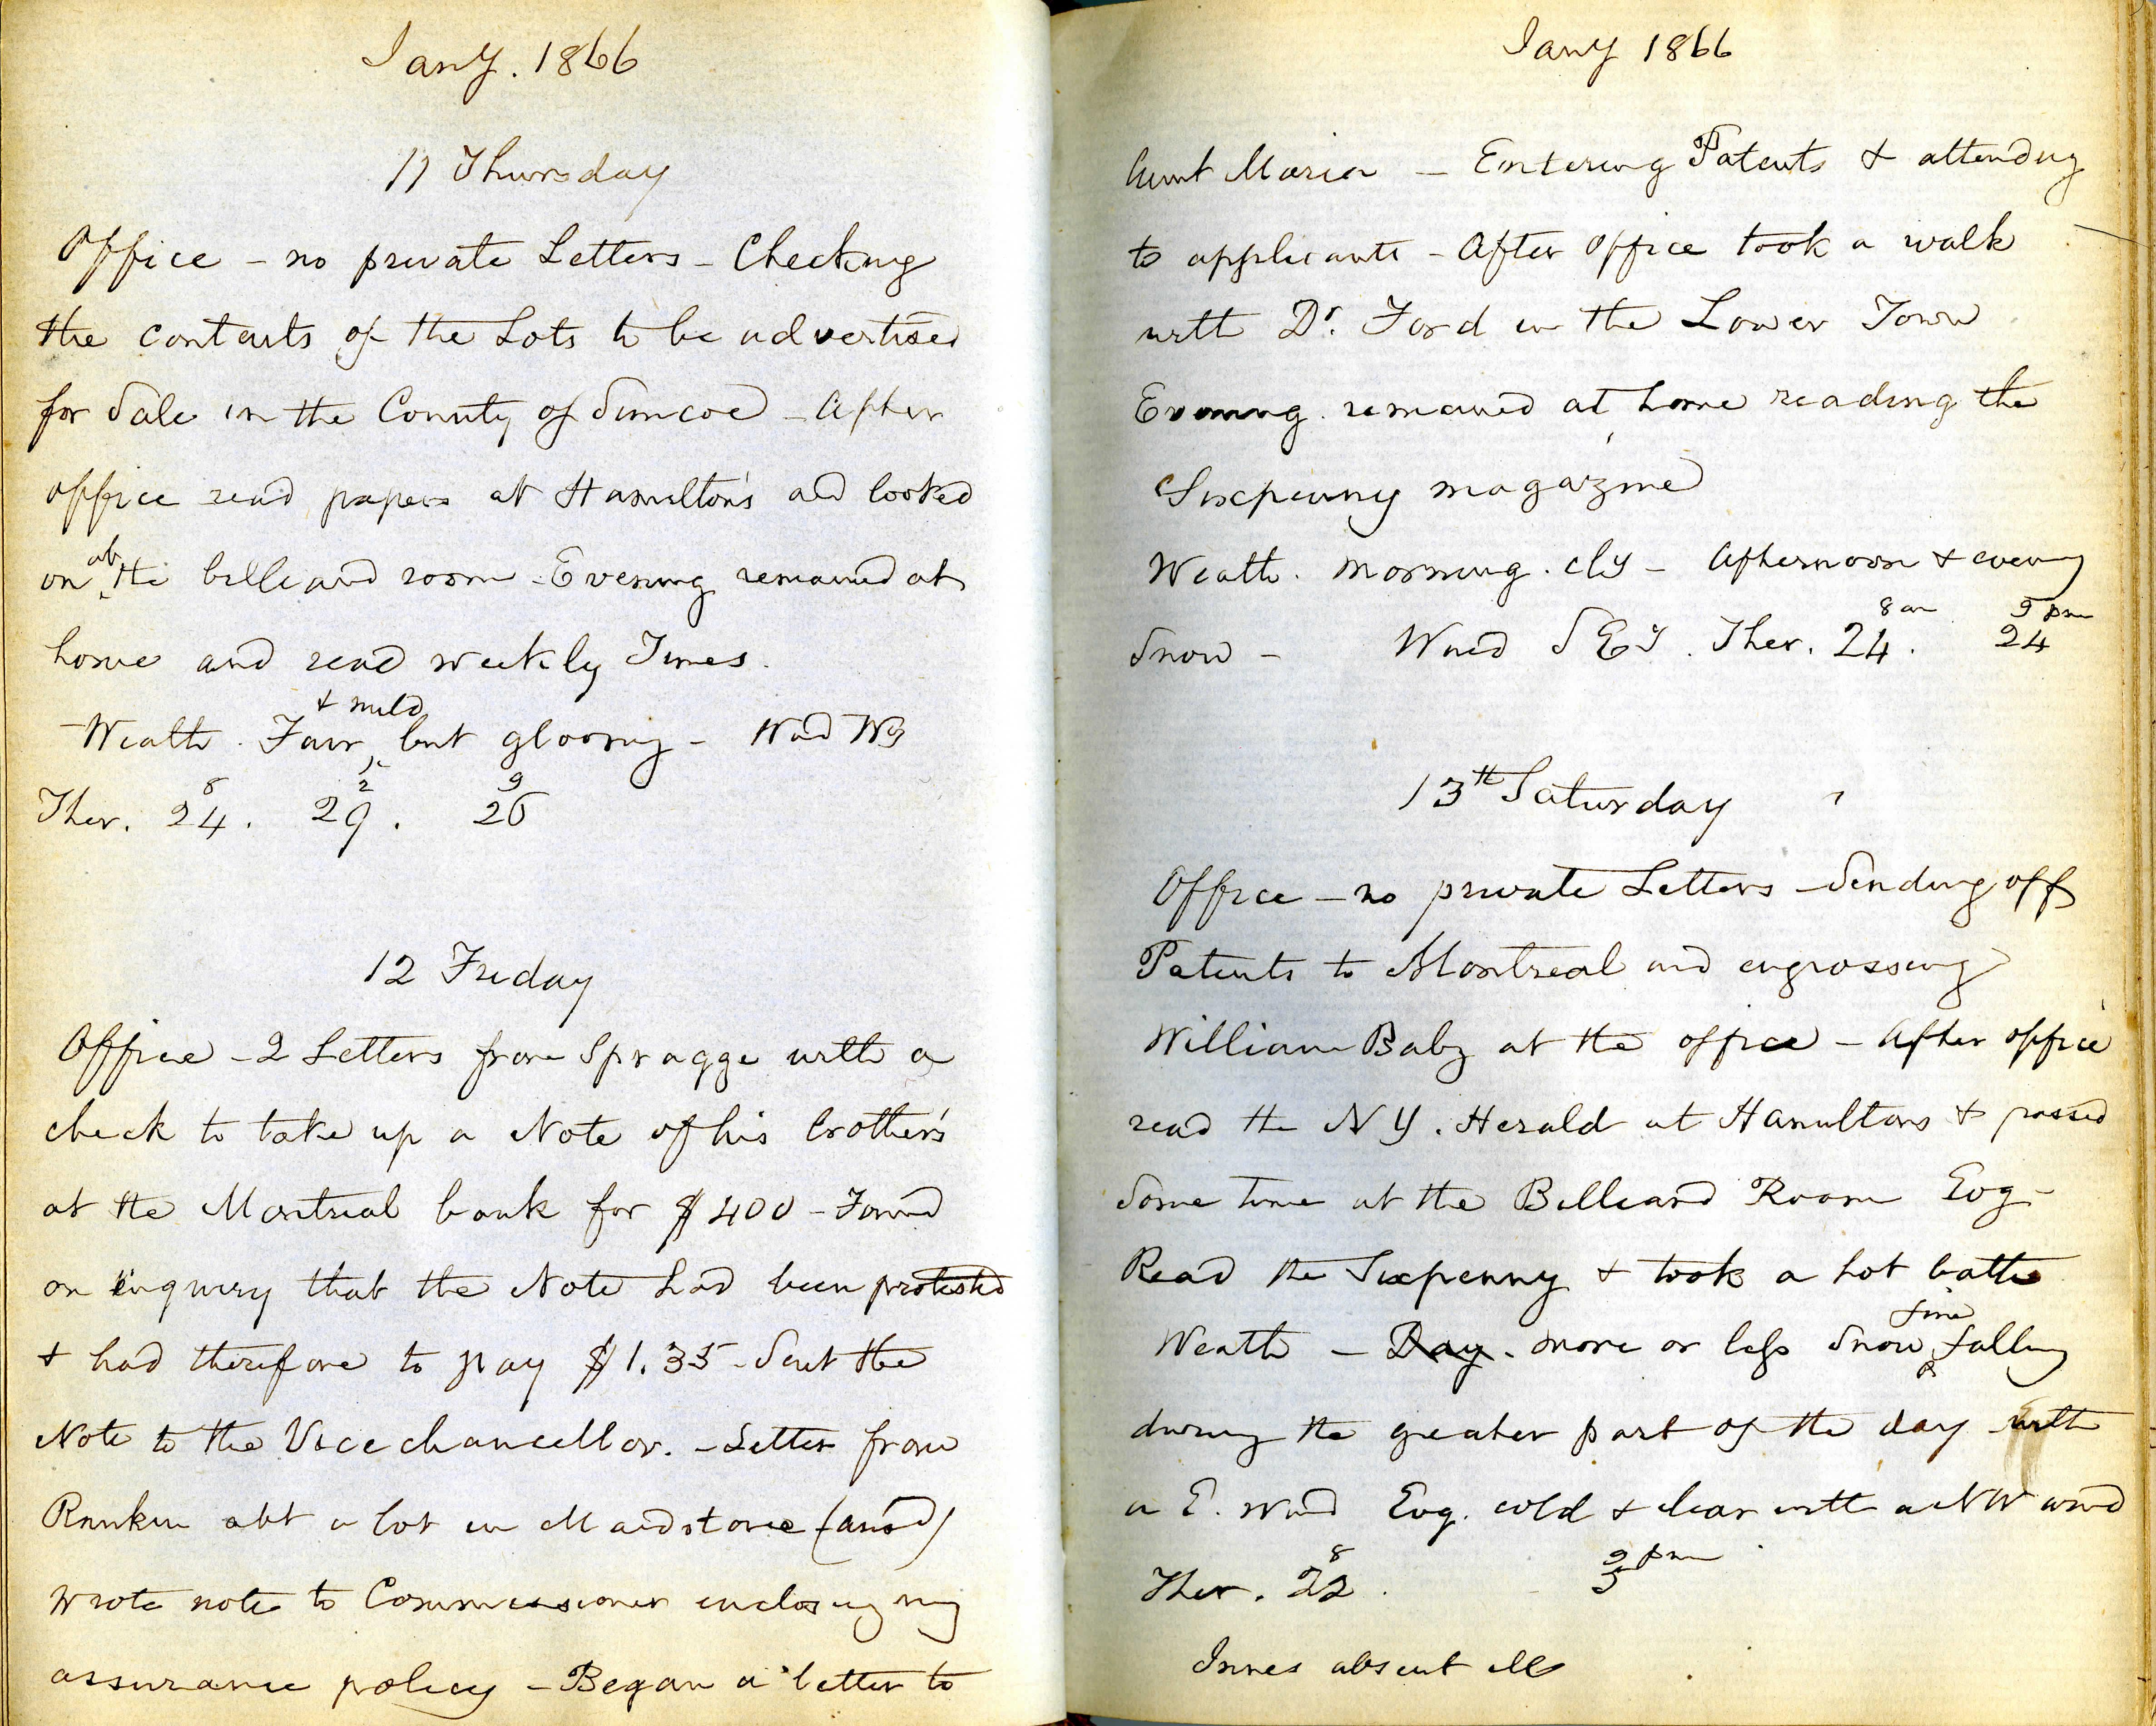 Jany. 1866
11 Thursday
Office – no private Letters – Checking
the contents of the Lots to be advertised
for Sale in the County of Simcoe – After
office read papers at Hamilton's and looked
on at the billiard room – Evening remained at
home and read weekly Times.
– Weath. Fair & mild but gloomy – Wind Wy
8 2 9
Ther. 24. 29. 26
12 Friday
Office – 2 Letters from Spragge with a
check to take up a Note of his brother's
at the Montreal bank for $400 – Found
on inquiry that the Note had been protested
& had therefore to pay $1.35 – Sent the
Note to the Vice chancellor. – Letter from
Rankin abt a lot in Maidstone (ansd)
wrote note to Commissioner enclosing my
assurance policy – Began a letter to
Jany 1866
Aunt Maria – Entering Patents & attending
to applicants – After office took a walk
with Dr. Ford in the Lower Town
Evening remained at home reading the
Sixpenny magazine
Weath. morning. cly – Afternoon & evening
8 am 9 pm
Snow – Wind S Ey. Ther. 24. 24
13th Saturday
Office – no private Letters – Sending off
Patents to Montreal and engrossing
William Baby at the office – After office
read the N Y. Herald at Hamiltons & passed
some time at the Billiard Room Evg –
Read the Sixpenny & took a hot bath
Weath – Day. more or less fine Snow falling
during the greater part of the day with
a E. wind Evg. cold & clear with a NW wind
8 9 pm
Ther. 22. 3
Innes absent ill